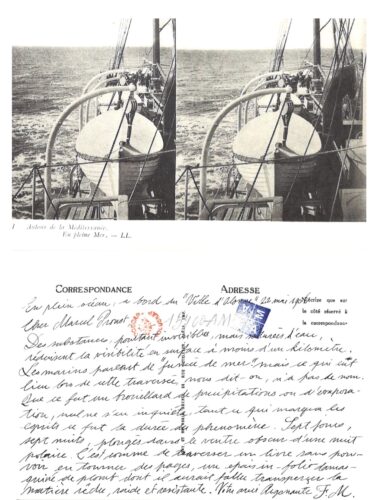 1 Autour de la Méditerranée.
En pleine Mer. — LL.
CORRESPONDANCE
ADRESSE
En plein océan, à bord du "Ville d'Alger" 22 mai
N'écrire que sur
le côté réservé à
la correspondance
Cher Marcel Proust
Des substances, pourtant invisibles, mais saturées d'eau,
réduisent la visibilité en surface à moins d'un kilomètre.
Les marins parlant de "fumée de mer" mais ce qui eut
lieu lors de cette traversée, nous dit-on, n'a pas de nom.
Que ce fut un brouillard de précipitations ou d'évapora-
tion, nul ne s'en inquiéta tant ce qui marqua les
esprits ce fut la durée du phénomène. Sept jours,
sept nuits, plongés dans le ventre obscur d'une nuit
polaire. C'est comme de traverser un livre sans pou-
voir en tourner des pages, un épais in-folio
de plomb dont il aurait fallu transpercer la
matière rêche, raide et consistante. Votre ami Argonaute F. M.